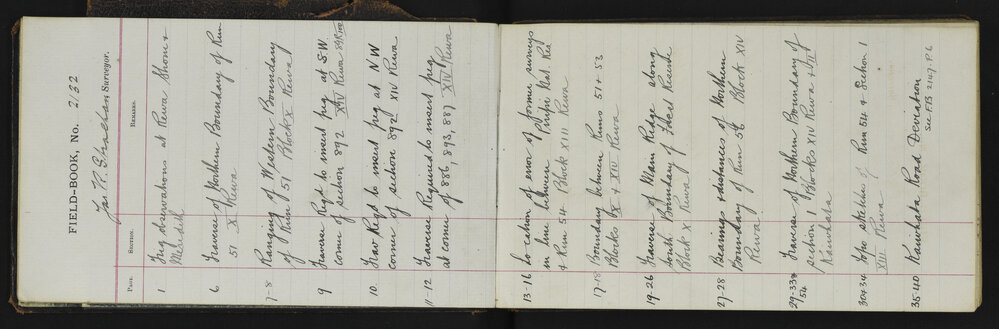 FIELD-BOOK, No. 2132
Jas R. Strachan Surveyor.
PAGE. SECTION. REMARKS.
1 Trig observations at Rewa Shom &
Meridl
6 Traverse of Northern Boundary of Run
51 X Rewa
7-8 Ranging of Western Boundary
of Run 51 Block X Rewa
9 Traverse Reqd to insert peg at S.W.
corner of section 892 XIV Rewa
10. Trav Reqd to insert peg at NW
corner of section 892 XIV Rewa
11-12 Traverse Required to insert peg
at corner of 886, 893, 887 XIV Rewa
13-16 Location of error of former surveys
in line between
& Run 54 Block XIII Rewa
17-18 Boundary between Runs 51 & 53
Blocks X & XIV Rewa
19-26 Traverse of Main Ridge along
South Boundary of
Block X Rewa
27-28 Bearings & distances of Northern
Boundary of Run 56 Block XIV
Rewa
29-33 & Traverse of Northern Boundary of
54 Section 1 Blocks XIV Rewa & III
Kaiwhata
30 & 34 Topo sketch of Run 54 & Section 1
XIII Rewa
35-40 Kaiwhata Road Deviation
See F.B 2147-P.6